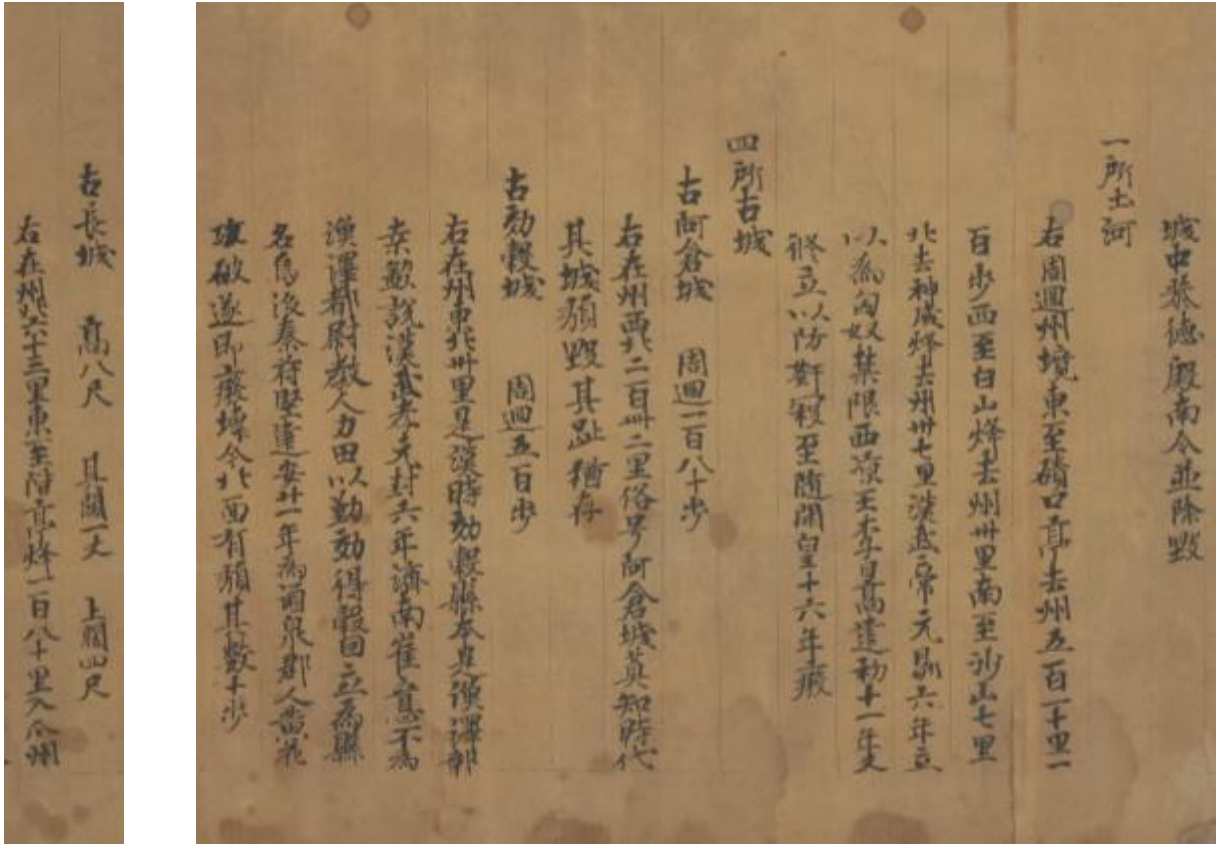 城中恭德殿南今並除毀
一所土河
右周迴州境東至磧口亭去州五百一十里一
百步西至白山烽去州卅里南至沙山七里
北去神威烽去州卅七里漢武帝元鼎六年立
以為匈奴禁限西涼王李暠建初十一年又
修立以防姧寇至隨開皇十六年廢
四所古城
古阿倉城 周迴一百八十步
右在州西北二百卌二里俗号阿倉城莫知時代
其城頹毀其趾猶存
古効穀城 周迴五百步
右在州東北卅里是漢時効穀縣本是漁澤鄣
桒欽說漢武孝元封六年濟南崔意不為
漁澤都尉教人力田以勤効得穀因立為縣
名焉後秦苻堅建安廿一年為酒泉郡人黃花
攻破遂即廢壞今北面有頹其數十步
古長城 高八尺 其闊一丈 上闊四尺
右在州北六十三里東至階亭烽一百八十里入瓜州